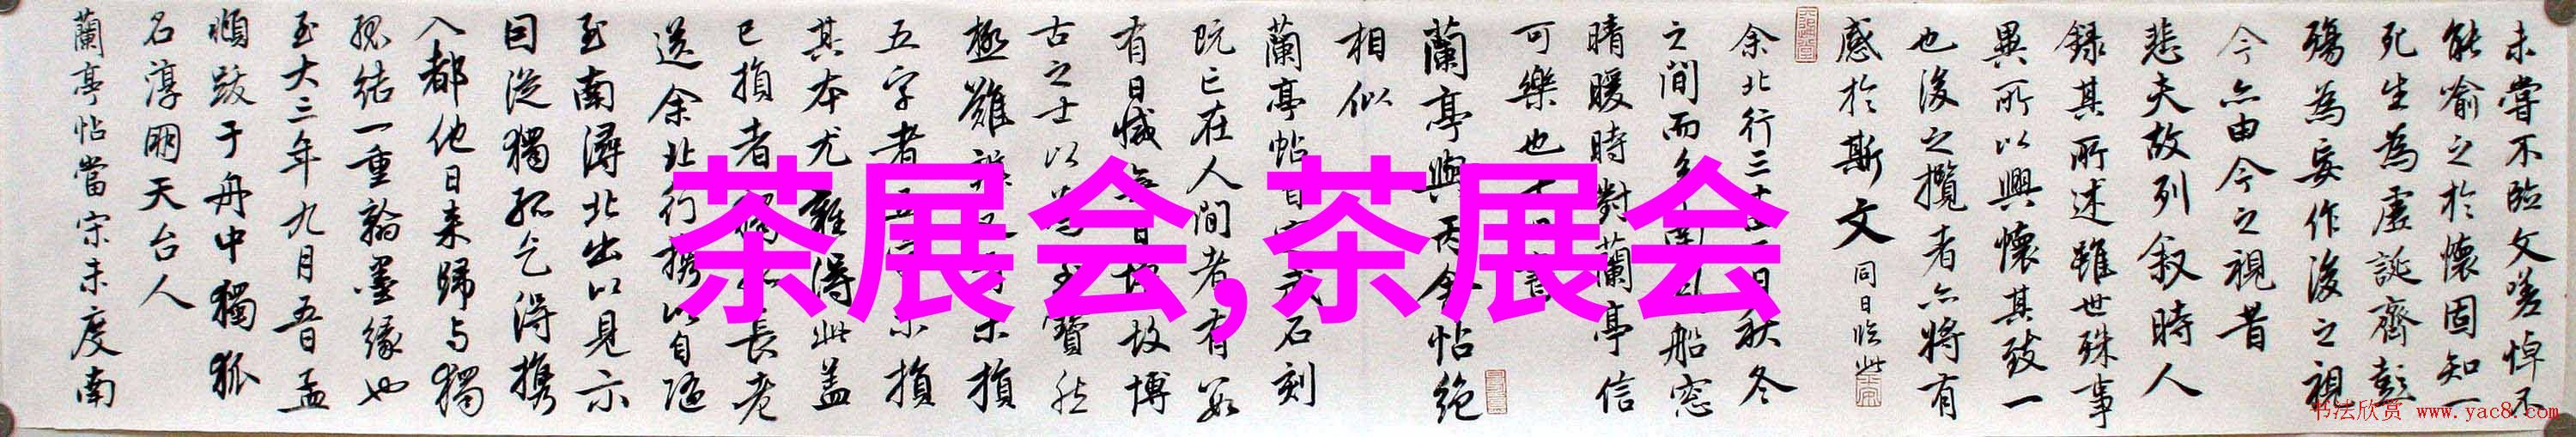 未嘗不臨文嗟悼不
能喻之於懷固知一
死生為虛誕齊彭
殤為妄作後之視
今亦由今之視昔
悲夫故列叙時人
錄其所述雖世殊事
異所以興懷其致一
也後之攬者亦將有
感於斯文
同日臨此
余北行三十日秋冬
之間而船窓
晴暖時對蘭亭信
可樂也書
蘭亭與丙舍帖絶
相似
蘭亭帖自定武石刻
既亡在人間者有數
有日減無日增故博
古之士以為至寶然
極難又有未損
五字者五字未損
其本尤難得此蓋
已損者長老
送余北行携以自隨
至南潯北出以見示
因從獨孤乞得携
入都他日来歸与獨
孤結一重翰墨緣也
至大三年九月五日孟
頫跋于舟中獨孤
名淳朋天台人
蘭亭帖當宋未度南
茶展会,茶展会
书法欣赏 www.yac8.com